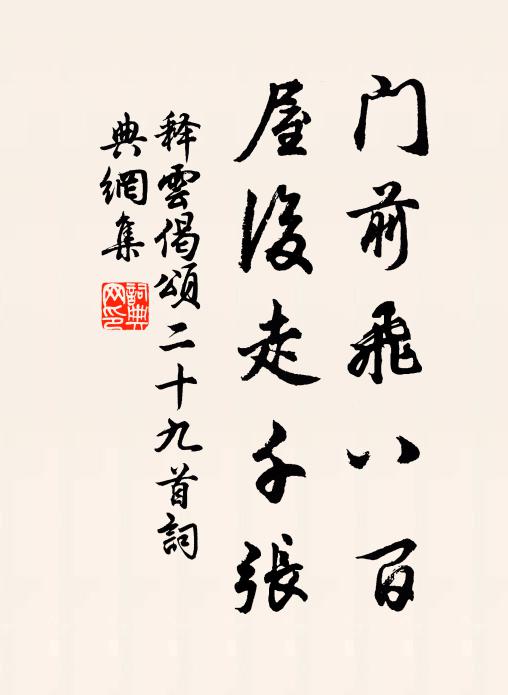 门前飛八百
屋後走千張
释雲偈頌二十九首詞
典網集
詞典
网印